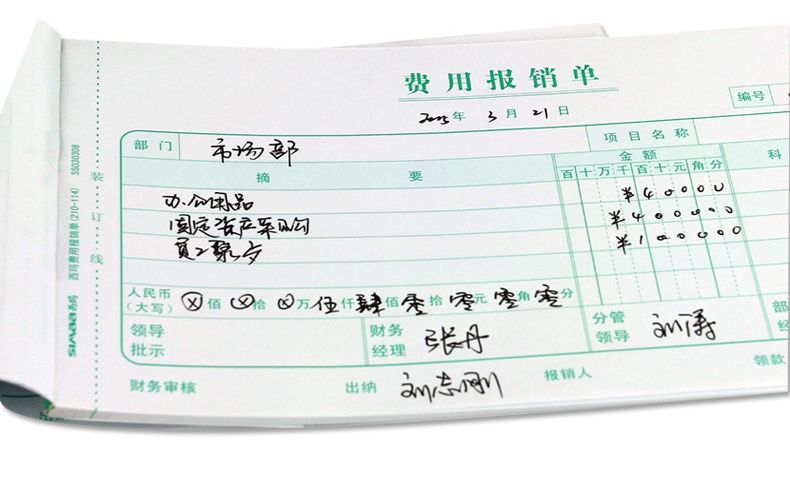 费用报销单
编号
2025年 3月 21日
部门 市场部 项目名称
摘要 金额 科
百十万千百十元角分
办公用品 ¥40000
固定资产采购 ¥400000
员工聚歺 ¥100000
人民币(大写) ⊗佰⊗拾⊗万伍仟肆佰零拾零元零角零分
领导批示 财务经理 张丹 分管领导 刘涛 部 经
财务审核 出纳 刘志刚 报销人 领款
装订线
SIMAA 西玛 西玛费用报销单(210-114) SS030308